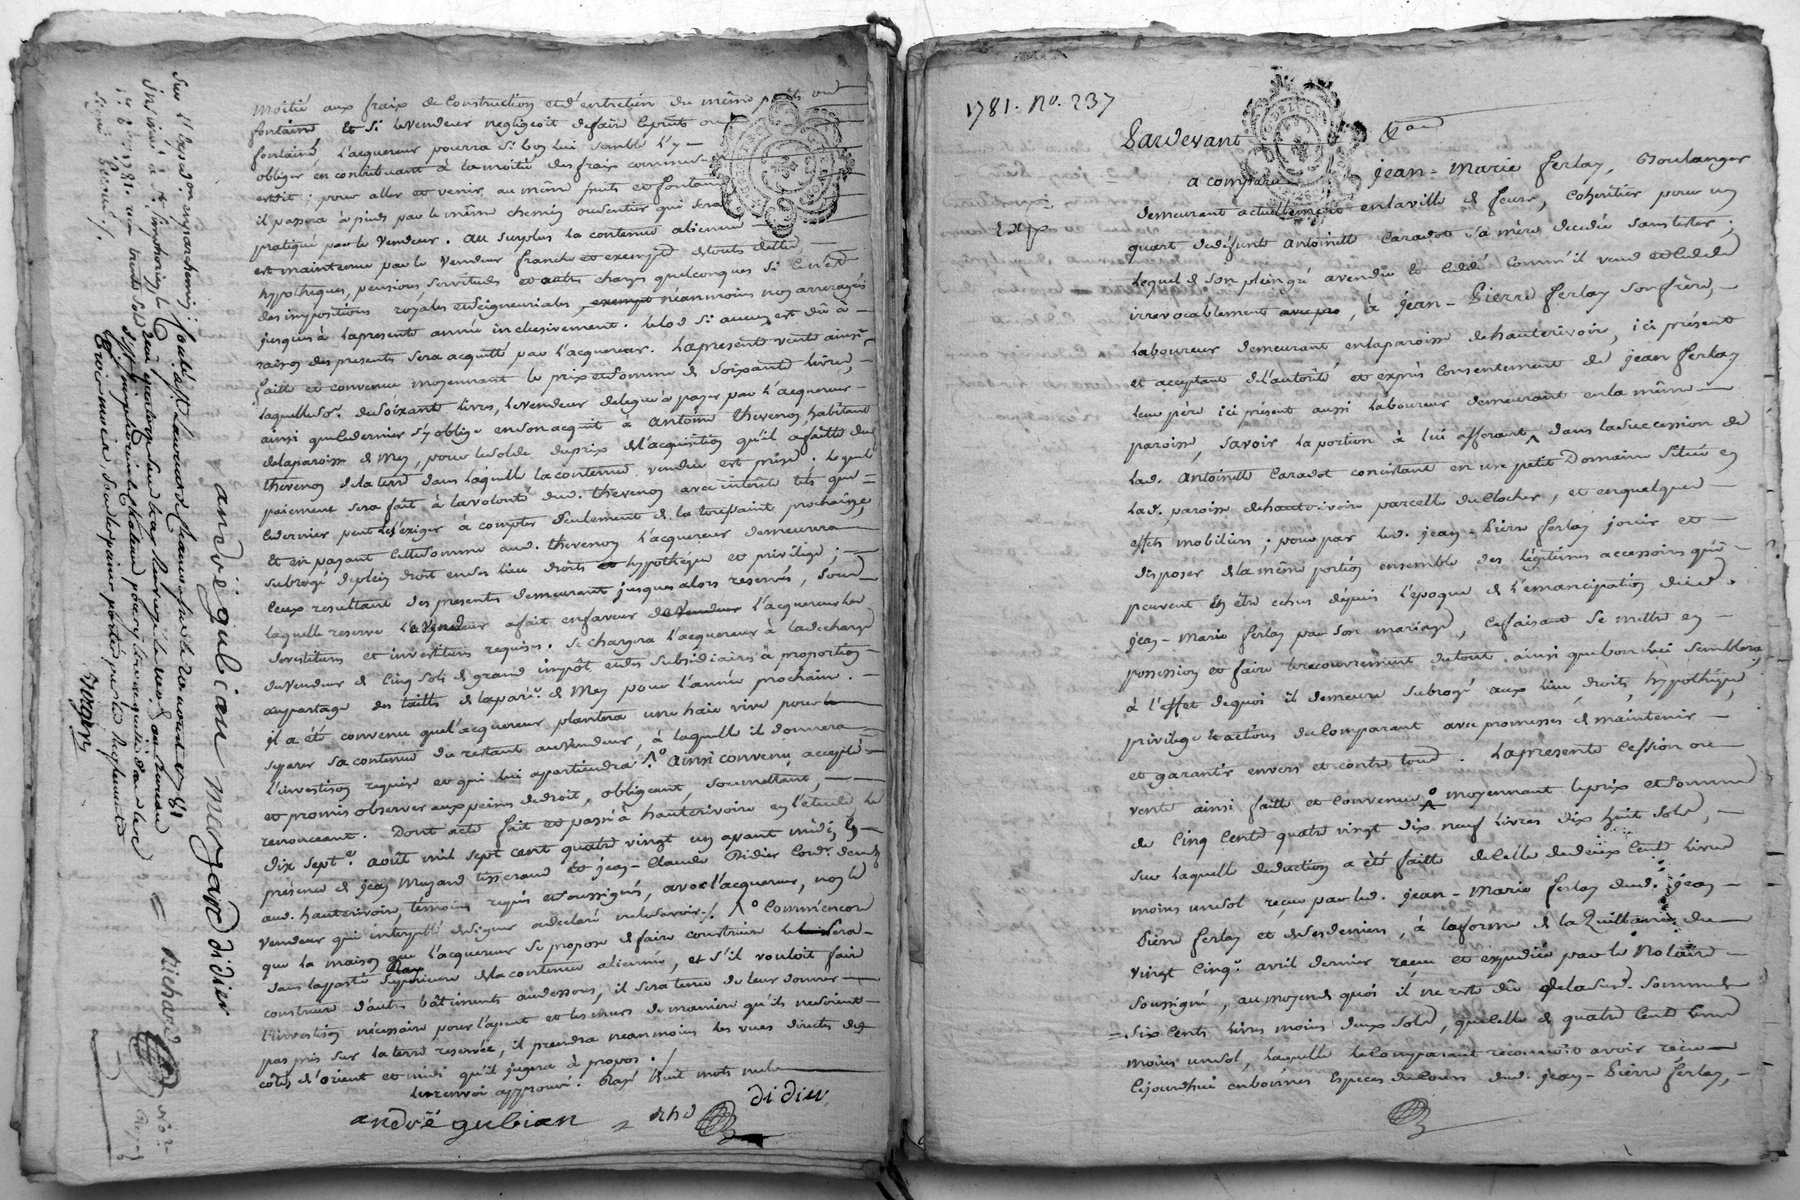 moitié aux fraix de Construction et d'entretien du même puits ou
fontaine et si le vendeur negligeoit de faire le puits ou
fontaine l'acquereur pourra si bon lui semble l'y
obliger en contribuant à la moitié des fraix comme
est dit ; pour aller et venir au même puits et fontaine
il passera à pieds par le même chemin ou sentier qui sera
pratiqué par le vendeur. au surplus la contenue alienée
est maintenue par le vendeur franche et exempte de touts dettes
hypotheques, pensions servitudes et autres charges quelconques si ce n'est
des impositions royales et seigneuriales, exempte néanmoins non arreragés
jusques à la presente année inclusivement. le lod si aucun est dû à
raison des presentes sera acquitté par l'acquereur. La presente vente ainsi
faitte et convenue moyennant le prix et somme de soixante livres,
laquelle so.e de soixante livres, le vendeur delegue à payer par l'acquereur
ainsi que ce dernier s'y oblige en son acquit à Antoine thevenon habitant
de la paroisse de Mey, pour le solde du prix de l'acquisition qu'il a faitte dud.
thevenon de la terre dans laquelle la contenue vendue est prise. lequel
paiement sera fait à la volonté dud. thevenon avec interets tels que
ce dernier peut les exiger à compter seulement de la toussaint prochaine
et en payant cette somme aud. thevenon l'acquereur demeurera
subrogé de plein droit en ses lieu droits et hypotheque et privilege ;
ceux resultant des presentes demeurant jusques alors reservés, sous
laquelle reserve le vendeur a fait en faveur de l'acquereur les
devestitures et investitures requises. se chargera l'acquereur à la decharge
du vendeur de cinq sols de grand impôt et des subsidiaires à proportion
au partage des tailles de la par.e de Mey pour l'année prochaine.
il a été convenu que l'acquereur plantera une haie vive pour
separer sa contenue du restant au vendeur, à laquelle il donnera
l'investison requise et qui lui appartiendra. Ainsi convenu accepté
et promis observer aux peines de droit, obligeant, soumettant,
renonceant. Dont acte fait et passé à hauterivoire en l'étude le
dix sept.e août mil sept cent quatre vingt un avant midi en
présence de jean Muzard tisserand et jean-Claude Didier Cord.r dem.t
aud. hauterivoire, témoins requis et soussignés, avec l'acquereur, non le
vendeur qui interpellé de signer a declaré ne le savoir./. comme encore
que la maison que l'acquereur se propose de faire construire sera
dans la partie superieure de la contenue alienée, et s'il vouloit faire
construire d'autres bâtiments au dessous, il sera tenu de leur donner
l'investison nécessaire pour l'agout et les murs de maniere qu'ils ne soient
pas pris sur la terre reservée, il prendra neanmoins les vues directes des
côtés d'orient et midi qu'il jugera à propos./
le renvoi approuvé. Rayé huit mots nuls
andré gubian didier
andré gubian muzard didier
1781. No. 237
Pardevant &.a
a comparu jean-Marie ferlay, Boulanger
Exp.
demeurant actuellement en la ville de feurs, Cohéritier pour un
quart de défunte Antoinette Caradot sa mère decedée sans tester ;
lequel de son plein gré a vendu et cedé comm'il vend et cede
irrevocablement, à jean-Pierre ferlay son frère,
laboureur demeurant en la paroisse de hauterivoire, ici présent
et acceptant de l'autorité et exprès consentement de jean ferlay
leur père ici présent aussi laboureur demeurant en la même
paroisse, savoir la portion à lui afferant dans la succession de
lad. Antoinette Caradot consistant en un petit Domaine situé en
lad. paroisse de hauterivoire parcelle du Clocher, et en quelques
effets mobiliers ; pour par led. jean-Pierre ferlay jouir et
disposer de la même portion ensemble des légitimes accessoires qui
peuvent en être échus depuis l'époque de l'émancipation dud.
jean-Marie ferlay par son mariage, ce faisant se mettre en
possession et faire le recouvrement du tout ainsi que bon lui semblera
à l'effet de quoi il demeure subrogé aux lieu, droits, hypothèque,
privilege et actions du Comparant avec promesses de maintenir
et garantir envers et contre tous. La presente Cession ou
vente ainsi faitte et convenue moyennant le prix et somme
de Cinq Cents quatre vingt dix neuf livres dix huit sols,
sur laquelle deduction a été faitte de celle de deux Cent livres
moins un sol reçue par led. jean-Marie ferlay dud. jean-
Pierre ferlay et de ses deniers, à la forme de la Quittance du
vingt Cinq.e avril dernier recue et expediée par le Notaire
soussigné, au moyen de quoi il ne reste dû de lad. somme de
six cents livres moins deux sols, que celle de quatre Cent livres
moins un sol, laquelle le Comparant reconnoit avoir reçue
cejourdhui en bonnes Especes de Cours dud. jean-Pierre ferlay,